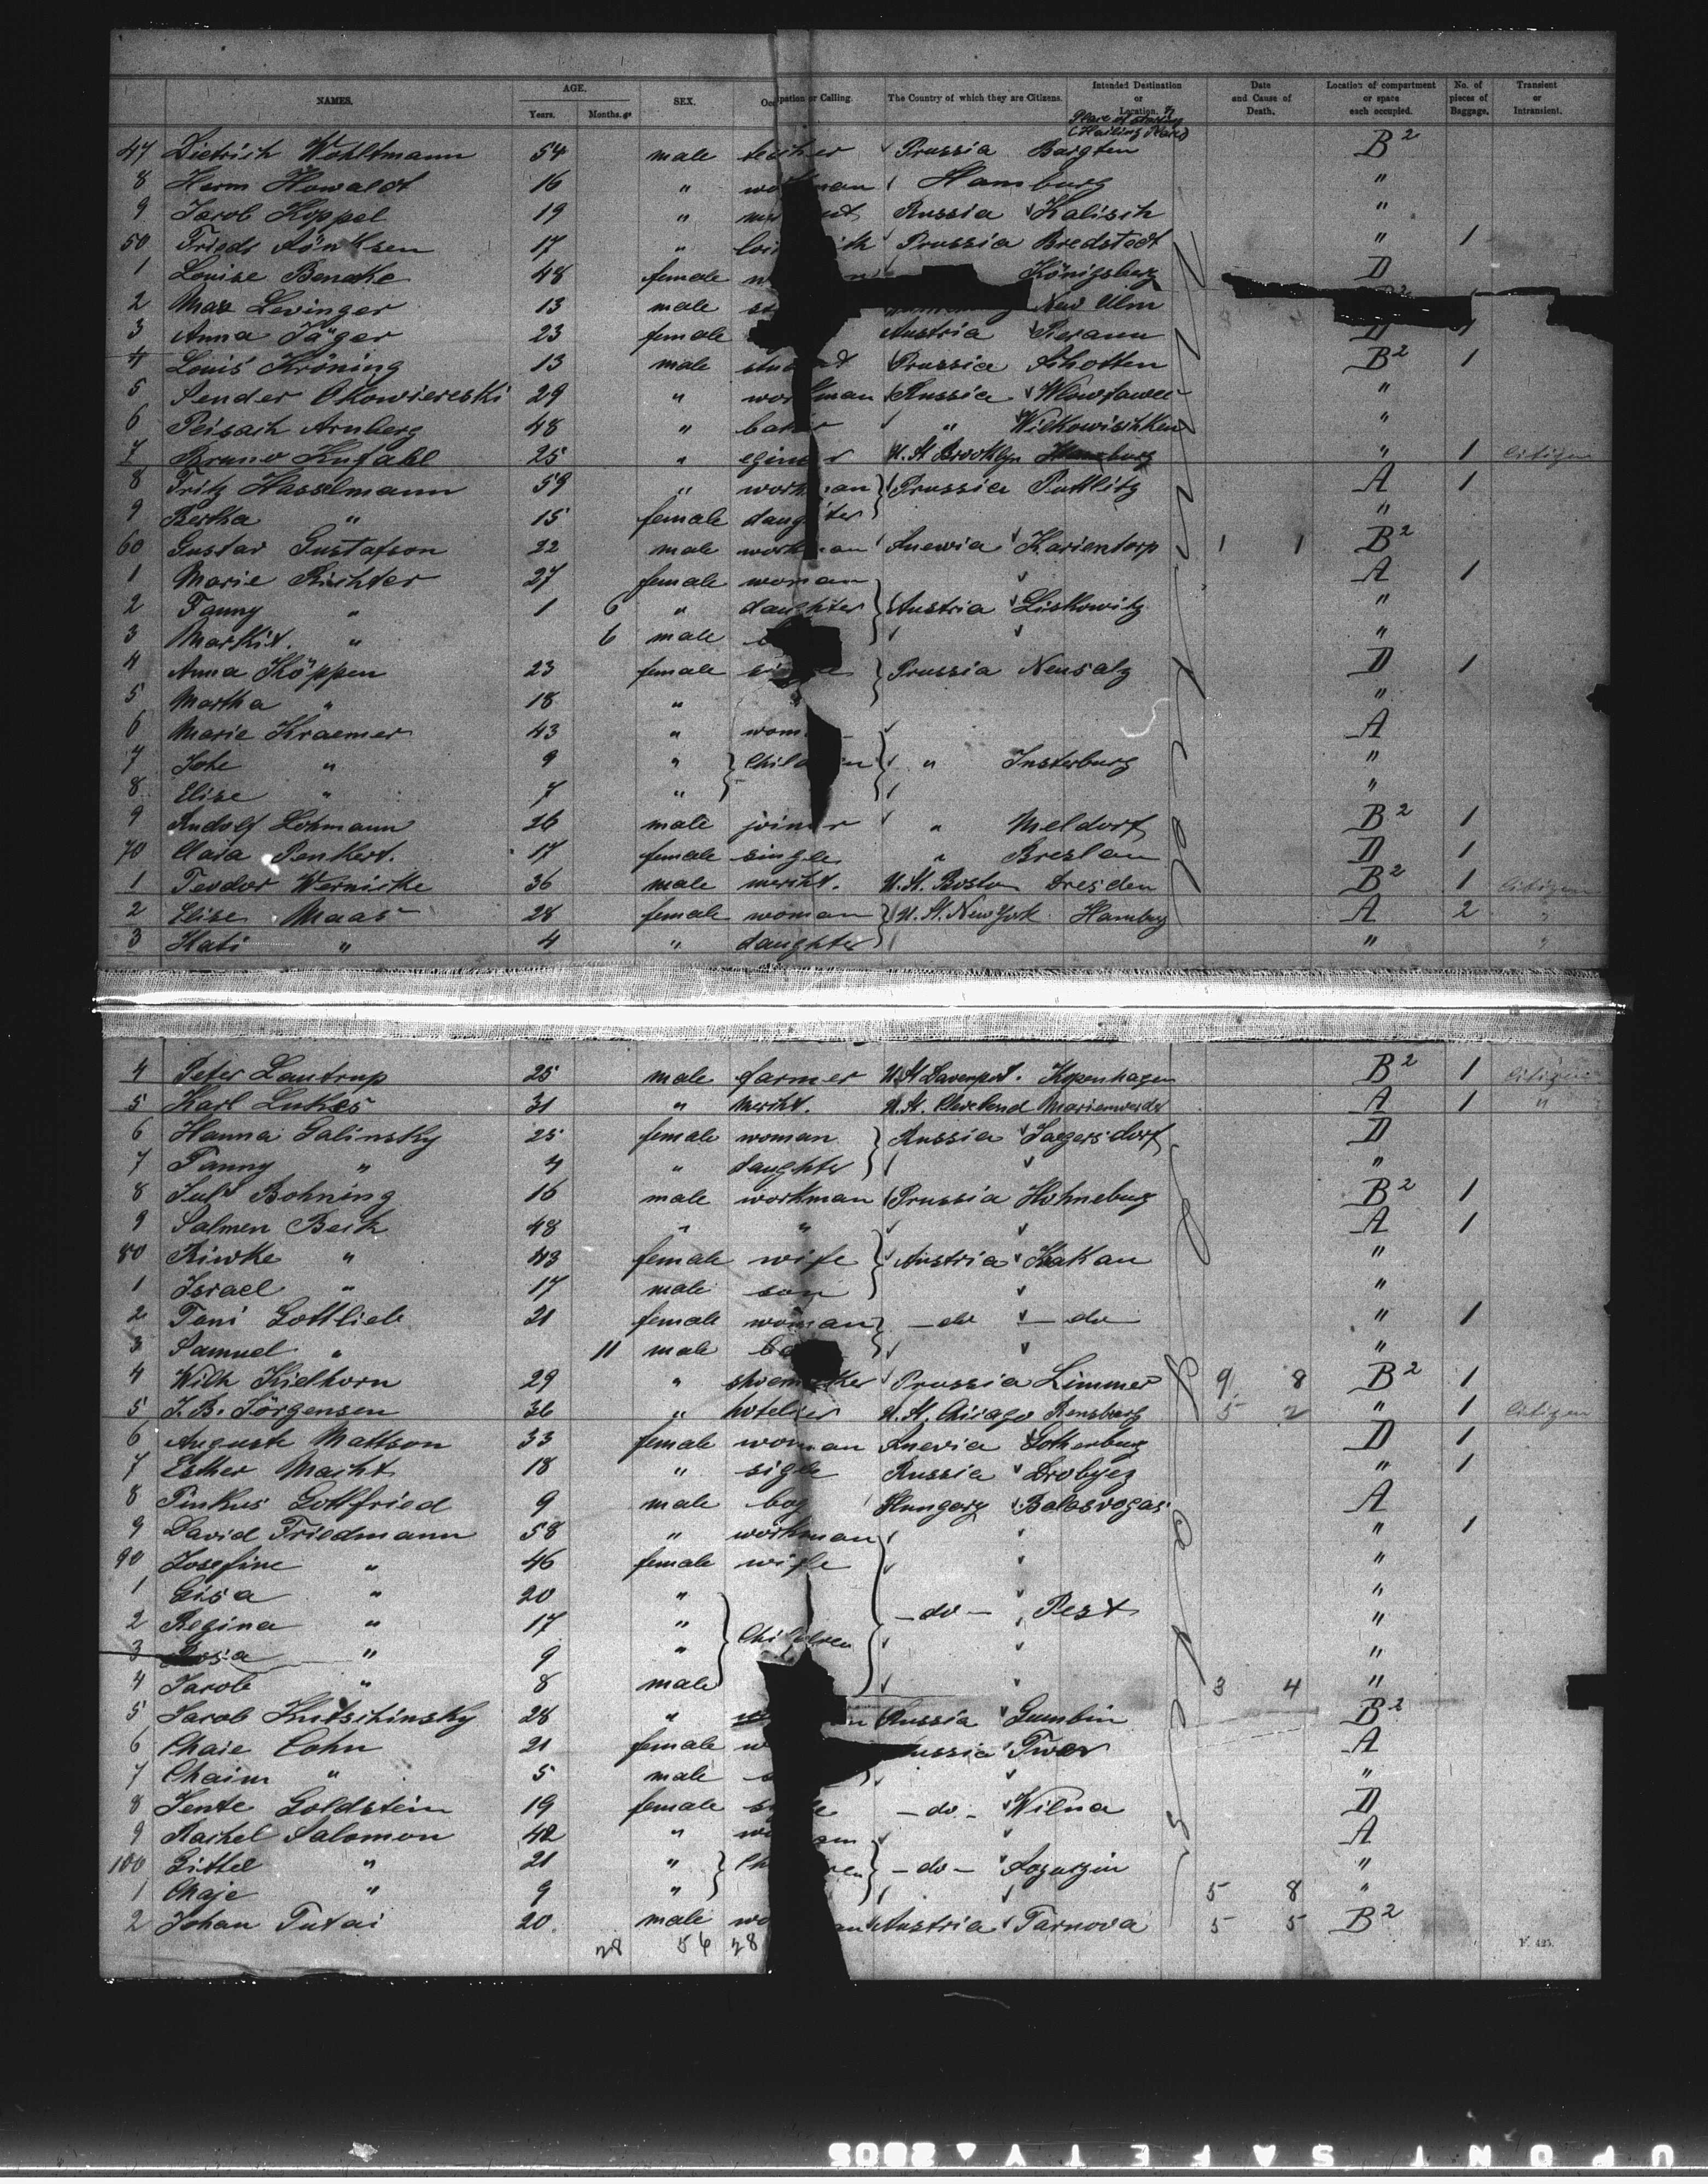 NAMES. AGE. Years. Months. SEX. Occupation or Calling. The Country of which they are Citizens. Intended Destination or Location. Date and Cause of Death. Location of compartment or space each occupied. No. of pieces of Baggage. Transient or Intransient.
Place of starting
(Hailing Place)
47 Dietrich Wohltmann 54 male teacher Prussia Bargten B2
8 Herm Howaldt 16 " Hamburg "
9 Jacob Koppel 19 " Russia Kalisch "
50 17 " Prussia Bredstedt " 1
1 Louise Benecke 48 female Königsberg D
2 Max Levinger 13 male New Ulm
3 Anna Jäger 23 female Austria D 1
4 Louis Kröning 13 male student Prussia Schotten B2 1
5 Sender 29 " workman Russia "
6 Peisach Arnberg 48 " baker " Wilkowischken "
7 Bruno Kufahl 25 " U. St. Brooklyn Hamburg " 1 Citizen
8 Fritz Hasselmann 59 " workman Prussia Puttlitz A 1
9 Bertha " 15 female daughter "
60 Gustav Gustafson 22 male workman Karientorp 1 1 B2
1 Marie Richter 27 female woman A 1
2 Fanny " 1 6 " daughter Austria Liskowitz "
3 " 6 male "
4 Anna Köppen 23 female Prussia Neusalz D 1
5 Martha " 18 " "
6 Marie Kraemer 43 " A
7 Johe " 9 " Children " Insterburg "
8 Elise " 7 " "
9 Rudolf Lohmann 26 male joiner " Meldorf B2 1
70 Clara Penkert. 17 female single " Breslau D 1
1 Teodor Wernicke 36 male mercht. U. St. Boston Dresden B2 1 Citizen
2 Elise Maas 28 female woman U. St. New York Hamburg A 2 "
3 Kati " 4 " daughter " "
4 Peter Lautrup 25 male farmer U St Davenport. Kopenhagen B2 1 Citizen
5 Karl Lukes 31 " mercht. U. St. Cleveland Marienwerder A 1 "
6 Hanna Galinsky 25 female woman Russia Jaegersdorf D
7 Fanny " 4 " daughter "
8 Juls Bohning 16 male workman Prussia Hohneburg B2 1
9 Salmen Beck 48 " " A 1
80 Riwke " 43 female wife Austria Kakau "
1 Israel " 17 male son "
2 Toni Gottlieb 21 female woman — do — do " 1
3 Samuel " 11 male "
4 Wilh Kielhorn 29 " shoemaker Prussia Limmer 9 8 B2 1
5 J. B. Jörgensen 36 " hotelier U. St. Chicago Rensburg 5 2 " 1 Citizen
6 Auguste Mattson 33 female woman Gothenburg D 1
7 Esther Macht 18 " sigle Russia " 1
8 Pinkus Gottfried 9 male boy Hungary A
9 David Friedmann 58 " workman " 1
90 Josefine " 46 female wife "
1 Gisa " 20 " "
2 Regina " 17 " Children — do — Pest "
3 Rosa " 9 " "
4 Jacob " 8 male 3 4 "
5 Jacob Kutschinsky 28 " Russia Gumbin B2
6 Chaie Cohn 21 female Twer A
7 Chaim " 5 male "
8 Jente Goldstein 19 female — do — Wilna D
9 Rachel Salomon 42 " A
100 Gittel " 21 " — do — "
1 Chaje " 9 " 5 8 "
2 Johan Tutai 20 male Austria Tarnova 5 5 B2
28 56 28
F. 425.
UPONT SAFETY ▲ 2805